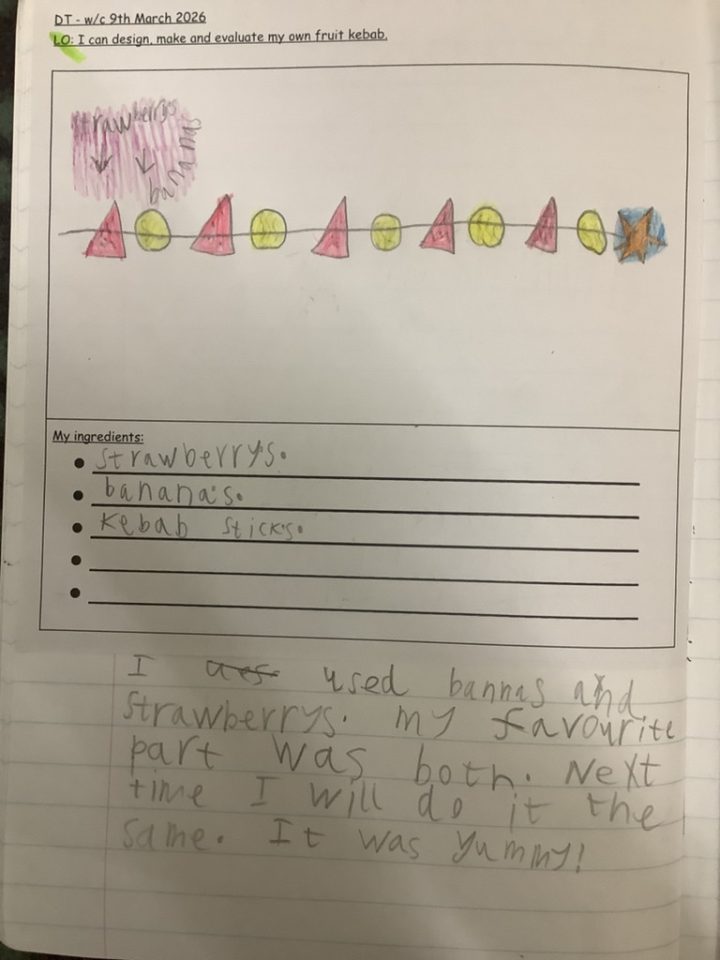 DT - w/c 9th March 2026
LO: I can design, make and evaluate my own fruit kebab.
strawberrys
bananas
My ingredients:
strawberrys.
banana's.
Kebab sticks.
I used bannas and
strawberrys. my favourite
part was both. Next
time I will do it the
same. It was yummy!